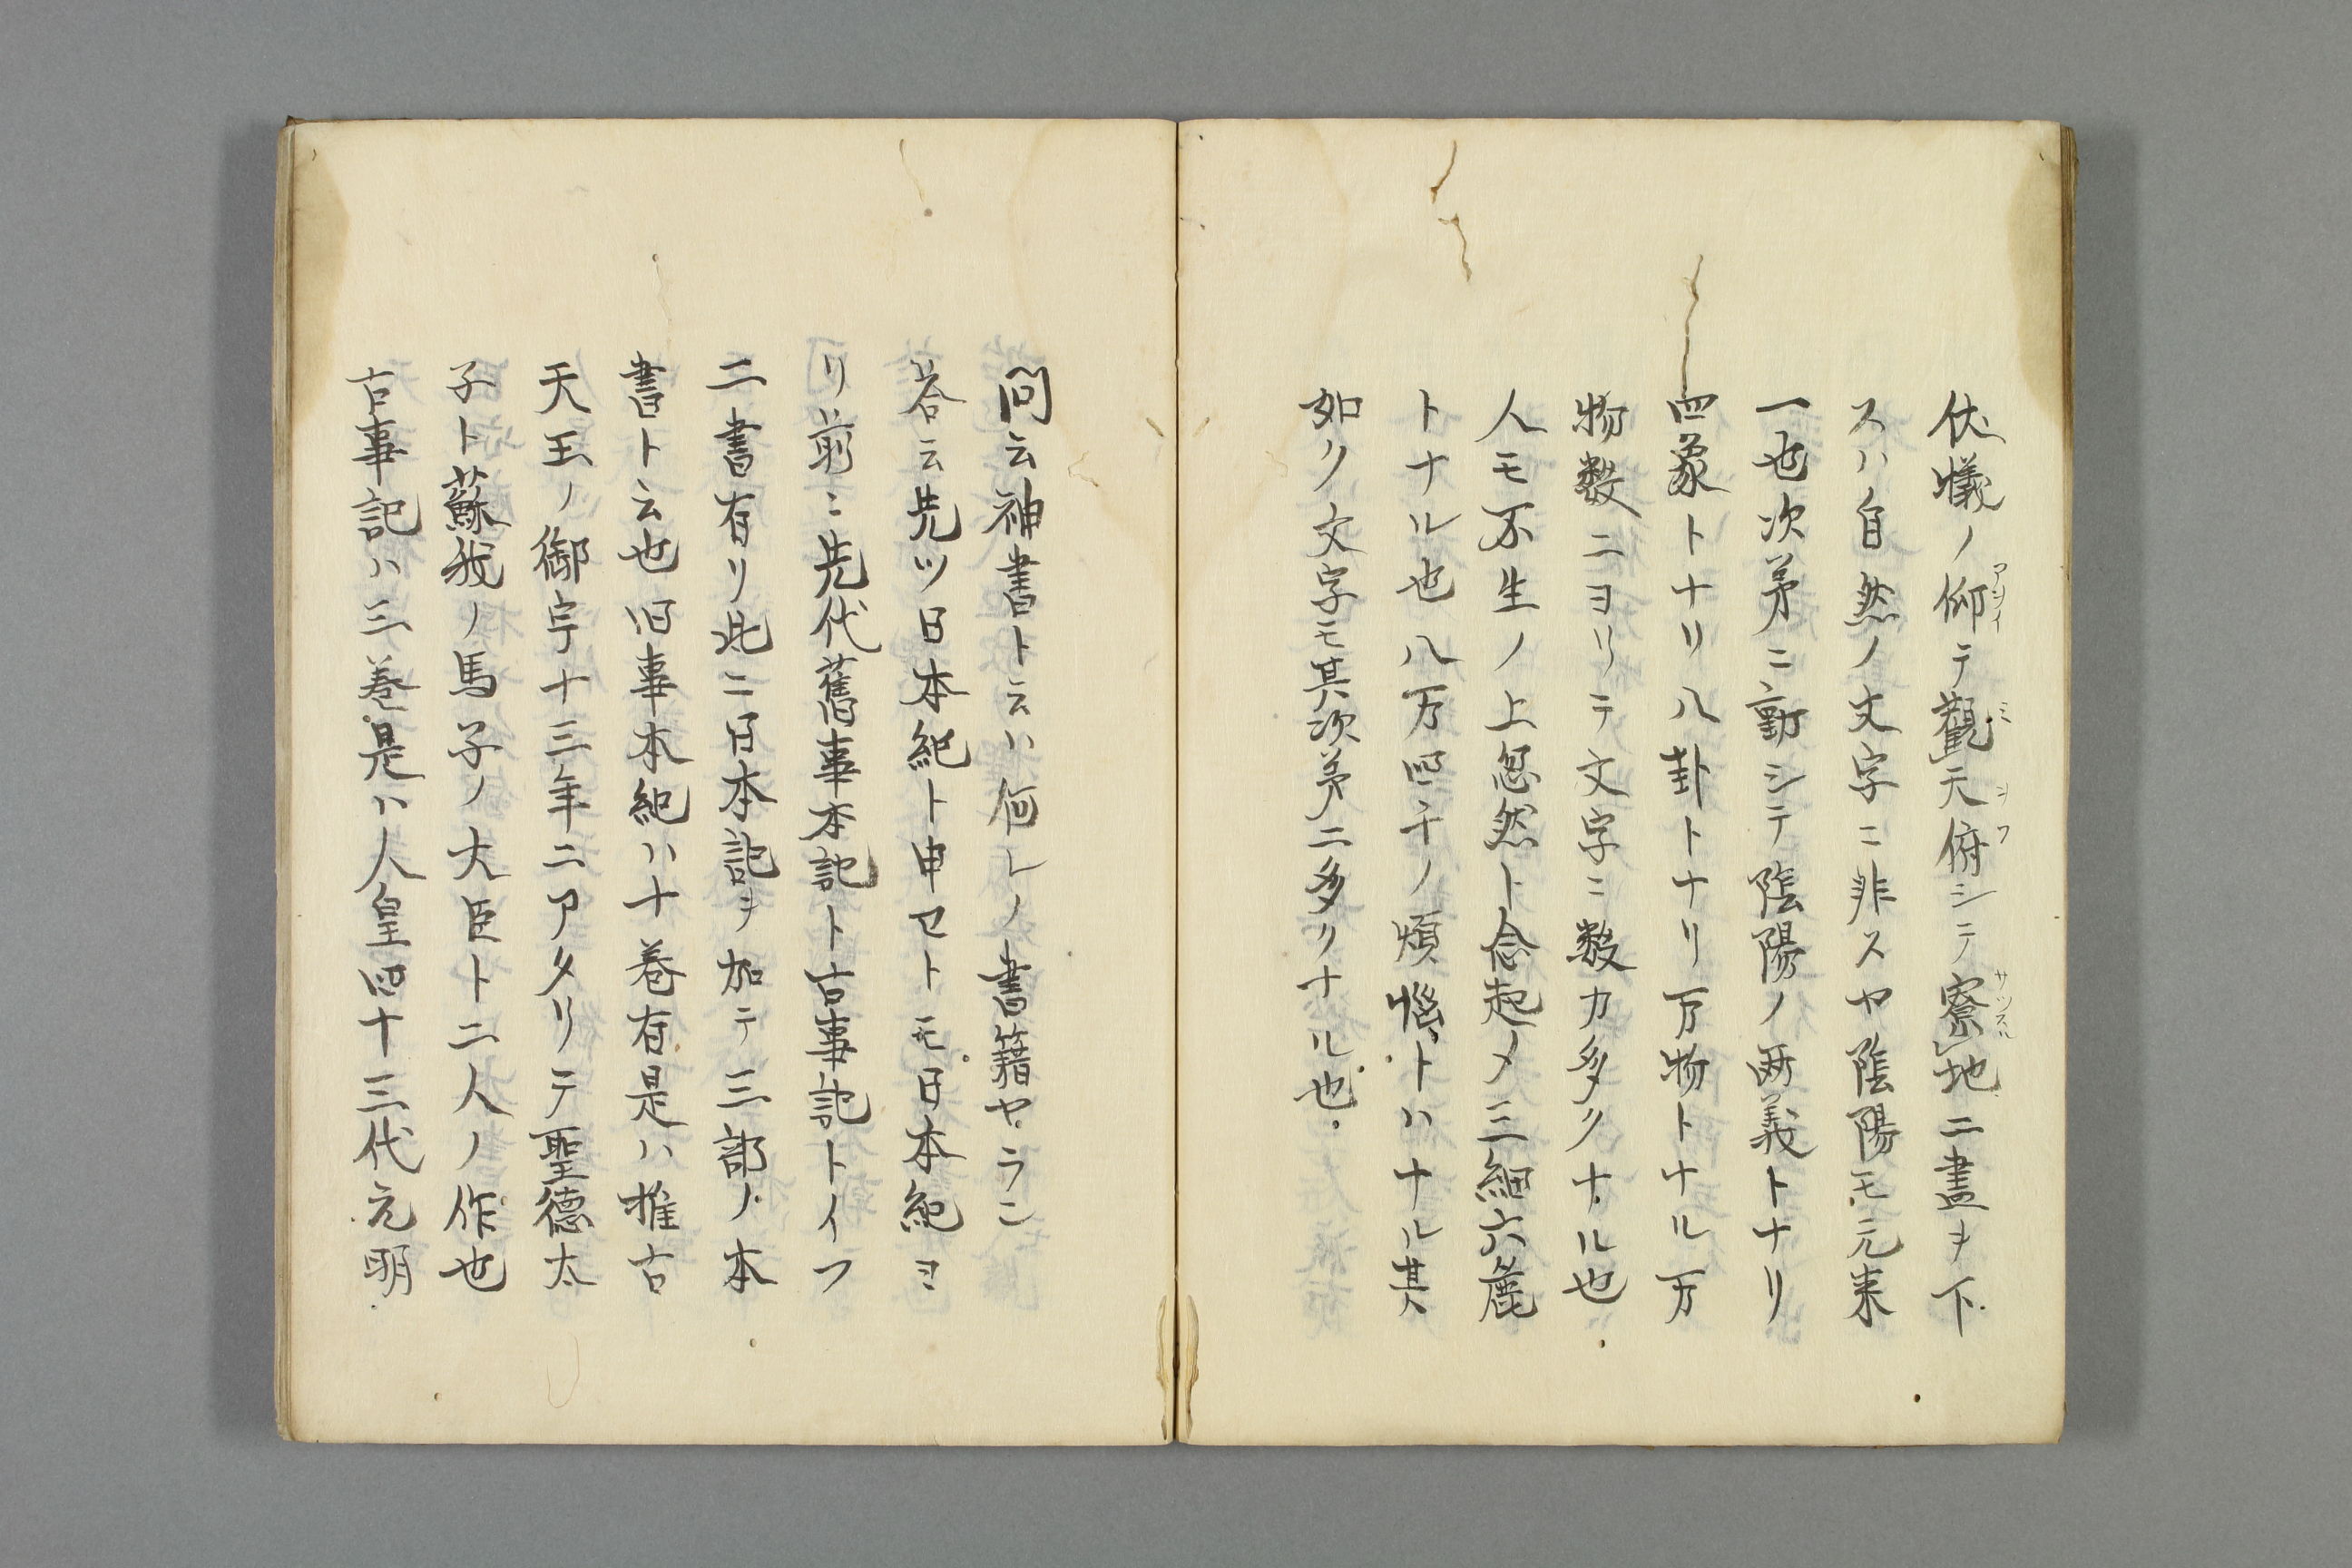 伏犧ノ仰テ觀天俯シテ寮地ニ畫ヲ下
スハ自然ノ文字ニ非スヤ陰陽モ元来
一也次第ニ動シテ陰陽ノ两義トナリ
四象トナリ八卦トナリ万物トナル万
物数ニヨリテ文字ニ数カ多クナル也
人モ不生ノ上忽然ト念起メ三細六麁
トナル也八万四千ノ煩惱トハナル其
如ク文字モ其次第ニ多クナル也
問云神書ト云ハ何レノ書籍ヤラン
答云先ツ日本紀ト申セトモ日本紀ヨ
リ前ニ先代舊事本記ト古事記トイフ
二書有リ此ニ日本記ヲ加テ三部ノ本
書ト云也旧事本紀ハ十巻有是ハ推古
天王ノ御宇十三年ニアタリテ聖德太
子ト蘇我ノ馬子ノ大臣ト二人ノ作也
古事記ハ三巻是ハ人皇四十三代元明